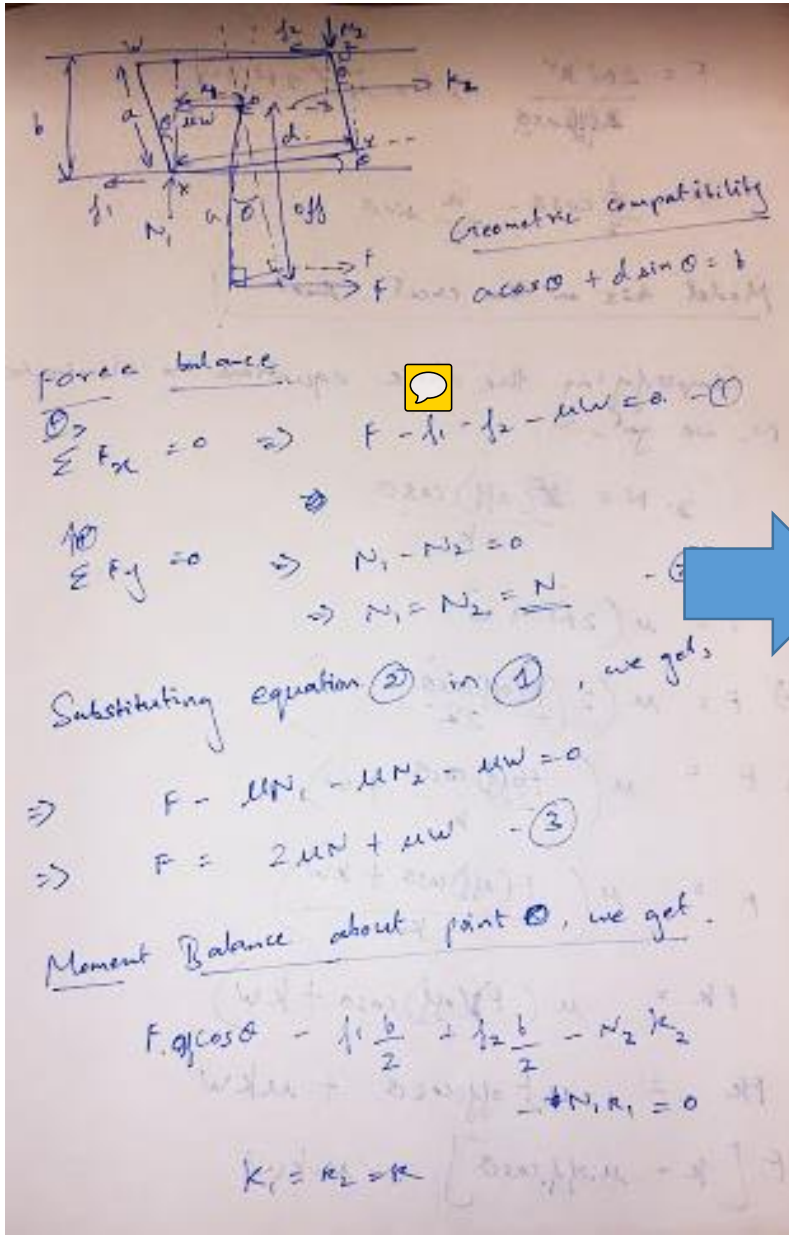 W
f2
N2
b
a
θ
μW
d
K2
x
f1
N1
a
θ
off
F
F
Geometric compatibility
a cos θ + d sin θ = b
Force balance
Σ Fx = 0 ⇒ F - f1 - f2 - μW = 0 - ①
Σ Fy = 0 ⇒ N1 - N2 = 0
⇒ N1 = N2 = N
Substituting equation ② in ①, we get,
⇒ F - μN1 - μN2 - μW = 0
⇒ F = 2μN + μW - ③
Moment Balance about point O, we get.
F. off cos θ - f1 b/2 + f2 b/2 - N2 K2
- N1 K1 = 0
K1 = K2 = K